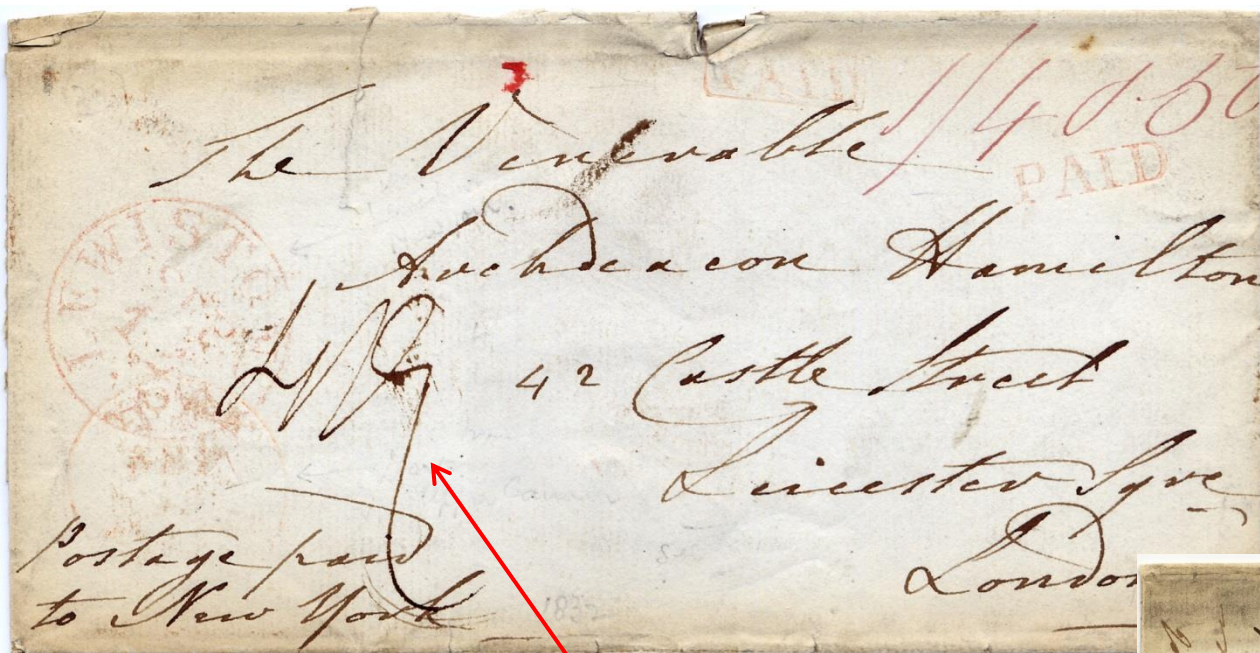 PAID
1/4 0 50
PAID
The Venerable
Archdeacon Hamilton
LEWISTO
42 Castle Street
Leicester Sqre
London
Postage paid
to New York
183